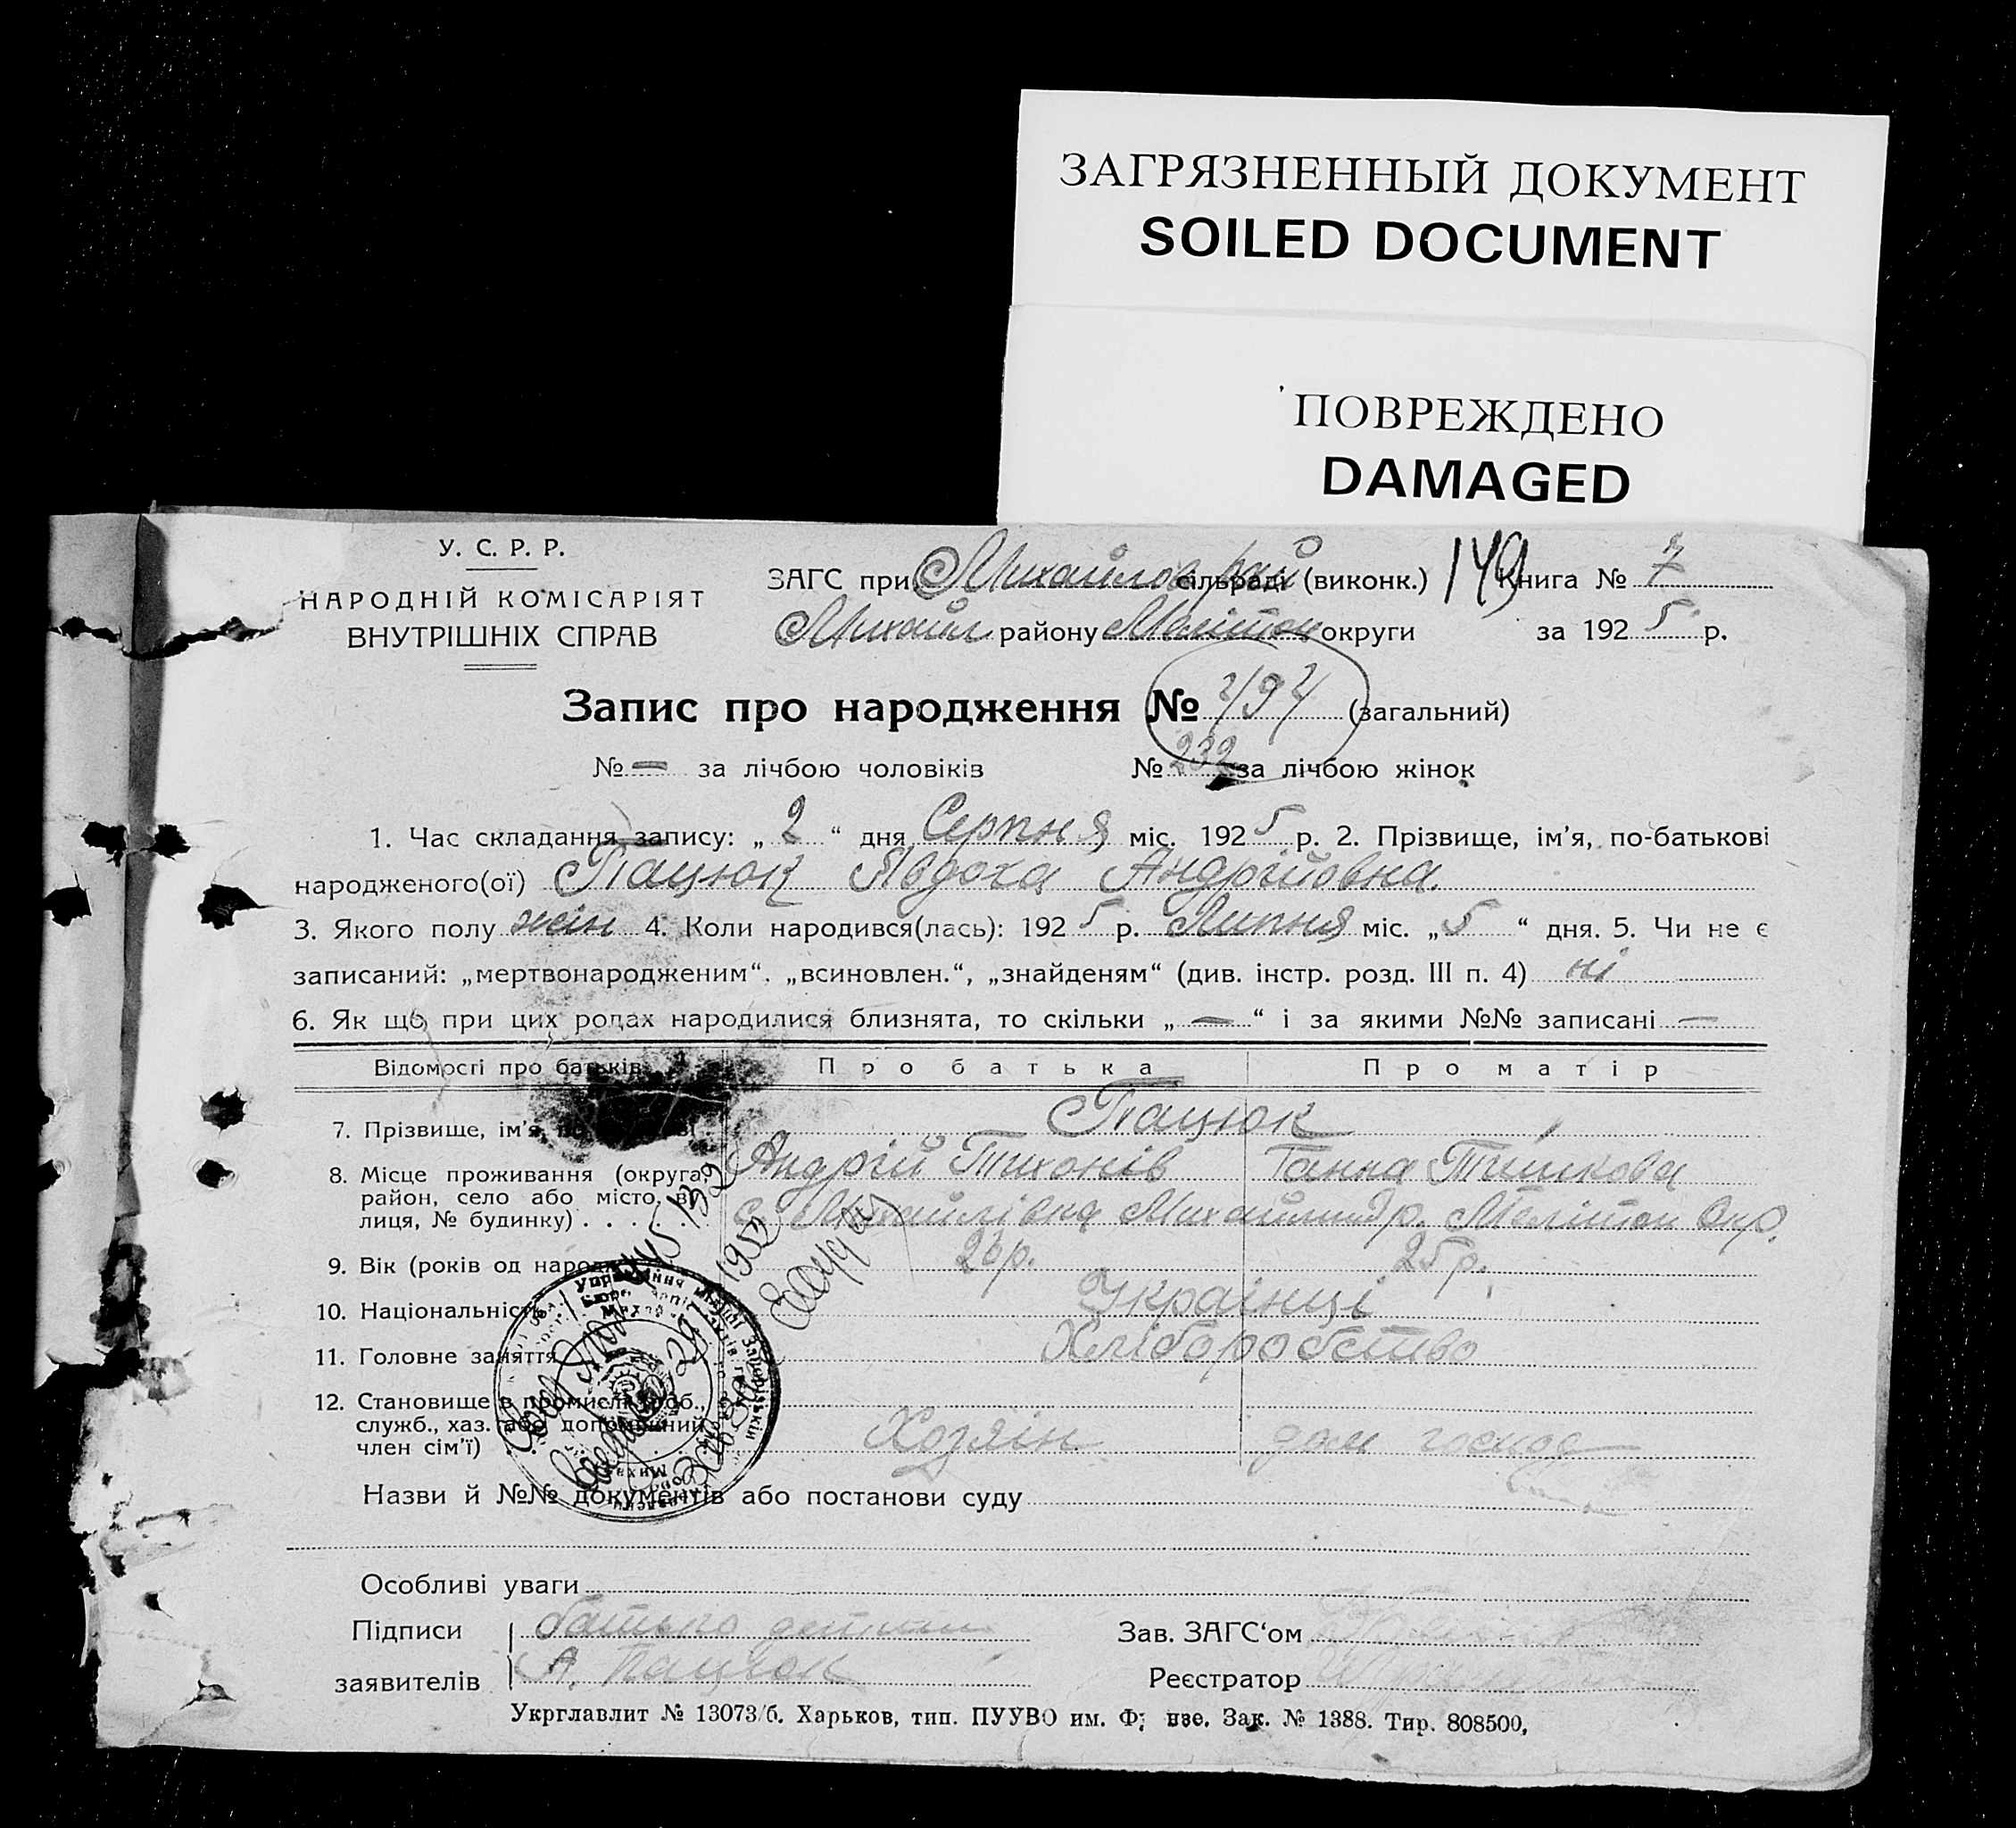 ЗАГРЯЗНЕННЫЙ ДОКУМЕНТ
SOILED DOCUMENT
ПОВРЕЖДЕНО
DAMAGED
У. С. Р. Р.
НАРОДНІЙ КОМІСАРІЯТ
ВНУТРІШНІХ СПРАВ
ЗАГС при Михайлов рай сільраді (виконк.) 149 Книга № 7
Михайл району Меліток округи за 1925 р.
Запис про народження № (загальний)
№ — за лічбою чоловіків № 232 за лічбою жінок
1. Час складання запису: „ 2 “ дня Серпня міс. 1925 р. 2. Прізвище, ім’я, по-батькові
народженого(ої) Пацюк Явдоха Андрійовна.
3. Якого полу жін 4. Коли народився(лась): 1925 р. Липня міс. „ 5 “ дня. 5. Чи не є
записаний: „мертвонародженим“. „всиновлен.“, „знайденям“ (див. інстр. розд. III п. 4) ні
6. Як що при цих родах народилися близнята, то скільки „ — “ і за якими №№ записані —
Відомості про батьків Про батька Про матір
7. Прізвище, ім’я, Пацюк
Андрій Тихонів Ганна
8. Місце проживання (округа,
район, село або місто, ву-
лиця, № будинку) с. Михайлівка р. Меліток Окр.
9. Вік (років од народ 26р. 25р.
10. Національність Українці
11. Головне заняття Хліборобство
12. Становище в промисл. (роб.,
служб., хаз. або допоміжний
член сім’ї) Хозяїн дом господ
Назви й №№ документів або постанови суду
Особливі уваги
Підписи батько дитини Зав. ЗАГС‘ом
заявителів А. Пацюк Реєстратор
Укрглавлит № 13073/б. Харьков, тип. ПУУВО им. Ф нзе. Зак. № 1388. Тир. 808500,